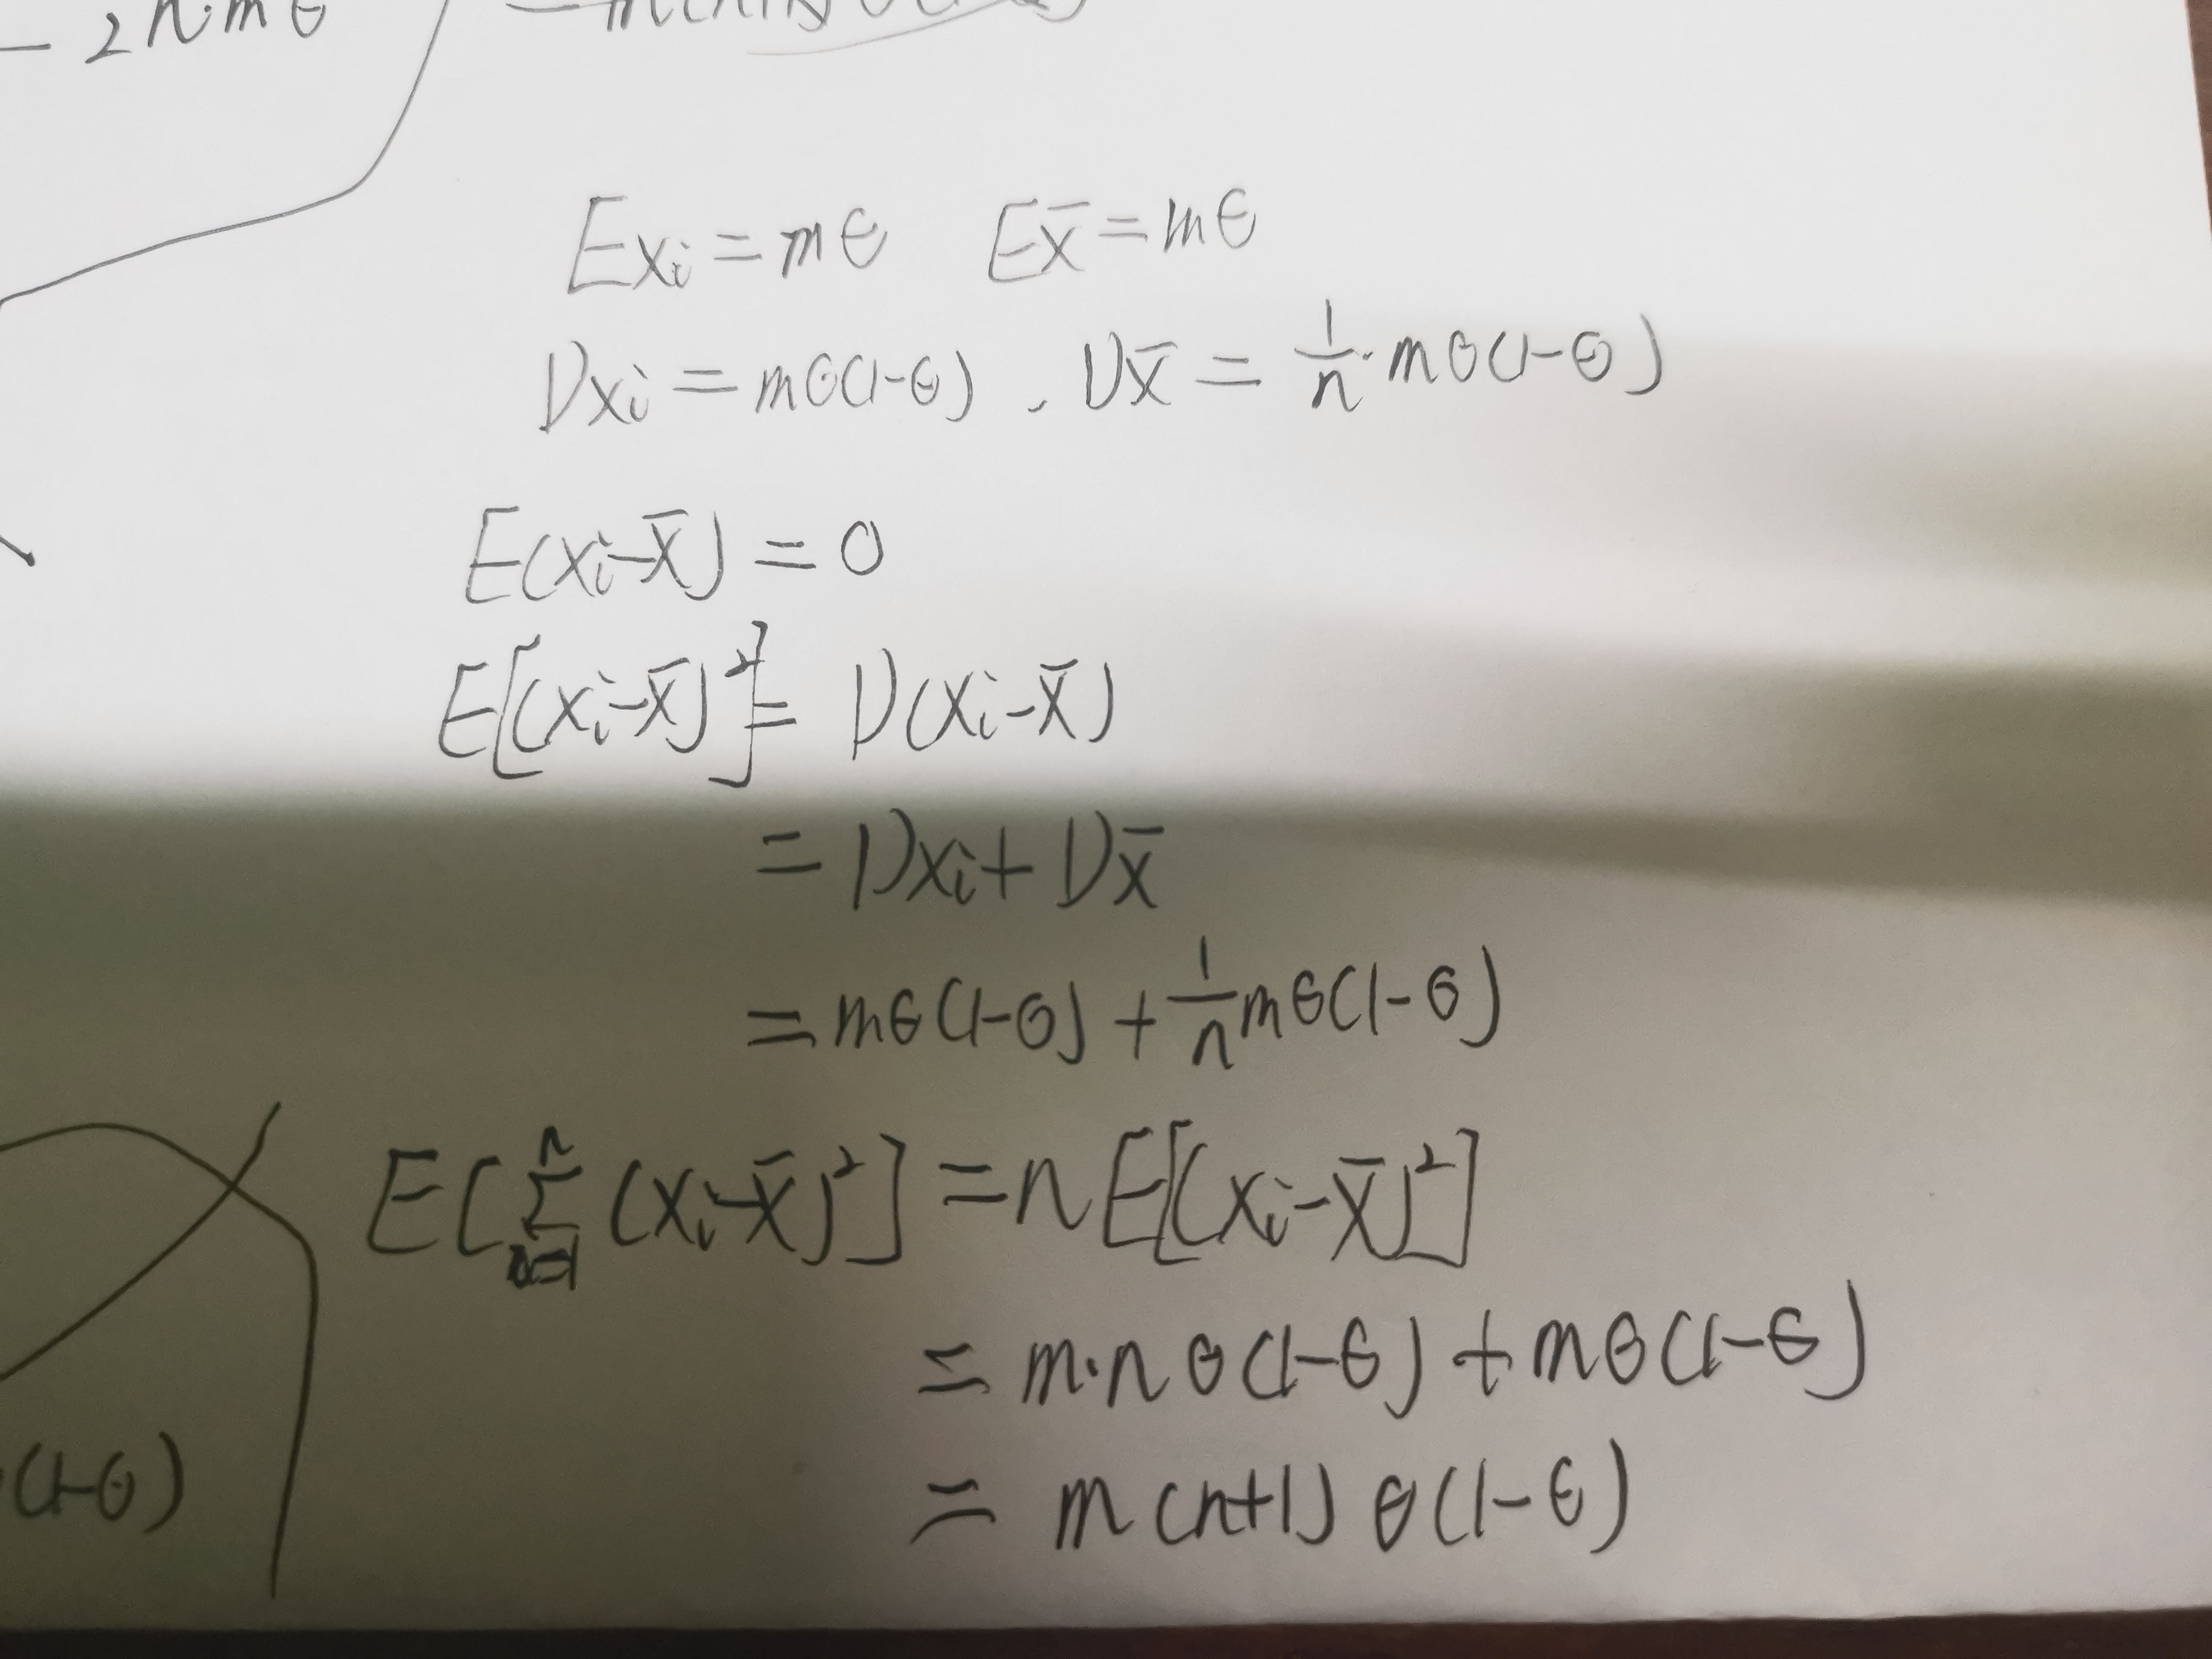 - 2n·mθ
Exi = mθ   Ex̄ = mθ
Dxi = mθ(1-θ) . Dx̄ = 1/n · mθ(1-θ)
E(xi-x̄) = 0
E[(xi-x̄)²] = D(xi-x̄)
= Dxi + Dx̄
= mθ(1-θ) + 1/n mθ(1-θ)
E[∑ⁿᵢ₌₁ (xi-x̄)²] = nE[(xi-x̄)²]
= m·nθ(1-θ) + mθ(1-θ)
(1-θ)
= m(n+1)θ(1-θ)